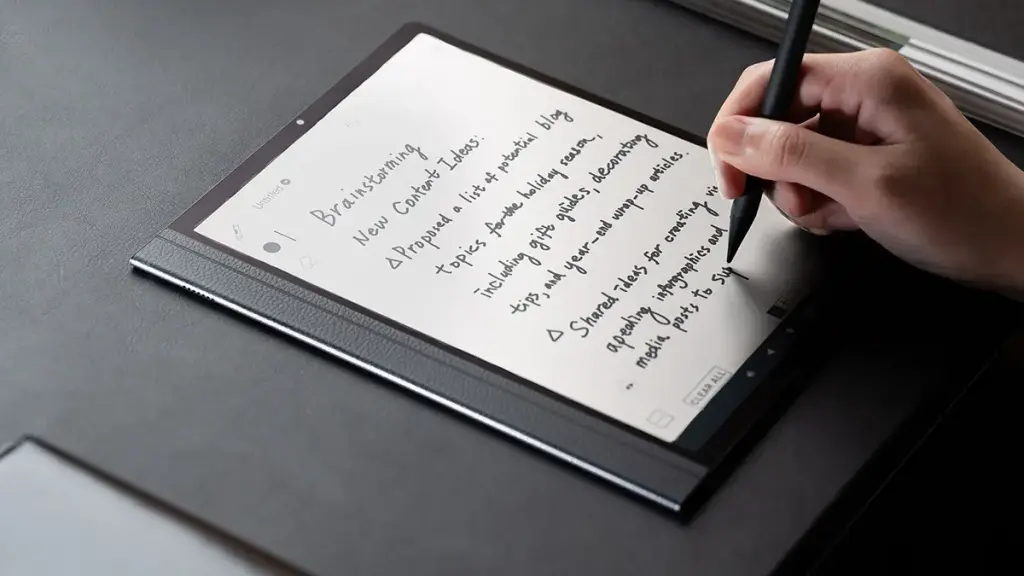 Untitled
Brainstorming
New Content Ideas:
△Proposed a list of potential blog
topics for the holiday reason,
including gift guides, decorating
tips, and year-and wrap-up articles.
△ Shared ideas for creating vi
apealing infographics and
media posts to sup
CLEAR ALL